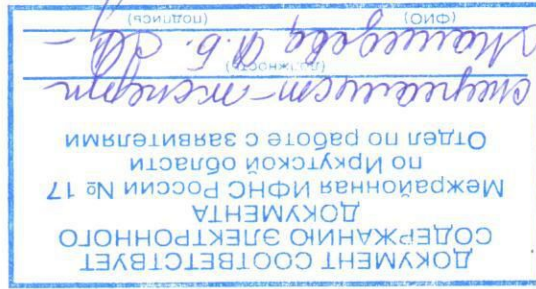 ДОКУМЕНТ СООТВЕТСТВУЕТ
СОДЕРЖАНИЮ ЭЛЕКТРОННОГО
ДОКУМЕНТА
Межрайонная ИФНС России № 17
по Иркутской области
Отдел по работе с заявителями
специалист-эксперт
(должность)
(ФИО) (подпись)